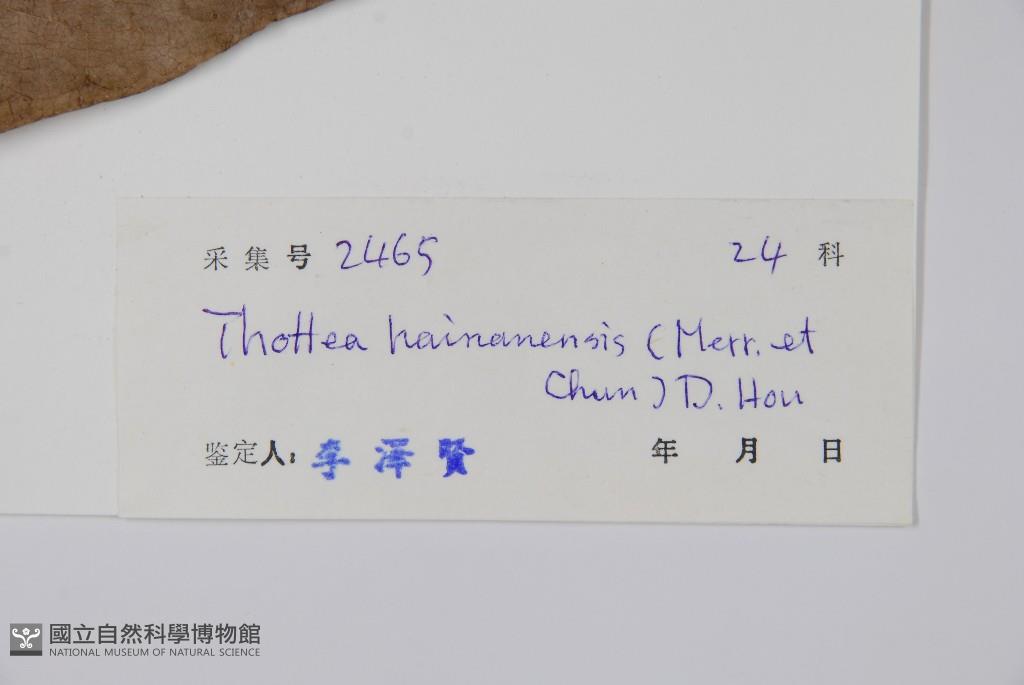 采集号 2465 24 科
Thottea hainanensis (Merr. et
Chun) D. Hou
鉴定人: 李泽贤 年 月 日
國立自然科學博物館
NATIONAL MUSEUM OF NATURAL SCIENCE